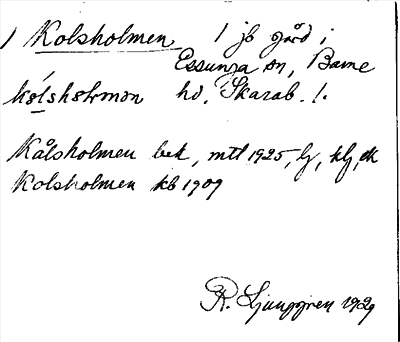 1 Kolsholmen 1 jb gård i
Essunga sn, Barne
kólsholmɔn hd, Skarab. l.
Kålsholmen bek, mtl 1925, lj, klj, ek
Kolsholmen kb 1909
R. Ljunggren 1929